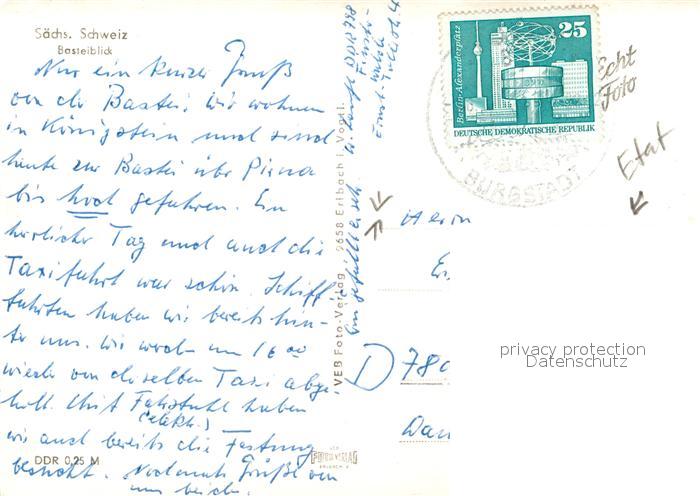 Sächs. Schweiz
Basteiblick
Nur ein kurzer Gruß
von der Bastei. Wir wohnen
in Königstein und sind
heute zur Bastei über Pirna
bis hoch gefahren. Ein
herrlicher Tag und auch die
Taxifahrt war schön. Schiff
fahrten haben wir bereits hin-
ter uns. Wir werden um 16 00
wieder von derselben Taxi abge
holt. Mit Fahrstuhl haben
(elektr.)
wir auch bereits die Festung
besucht. Nochmals Grüße von
uns beiden.
DDR 0,25 M
VEB Foto-Verlag 9658 Erlbach i. Vogtl.
DDR
25
Berlin-Alexanderplatz
DEUTSCHE DEMOKRATISCHE REPUBLIK
BURGSTADT
Echt
Foto
Etat
Herrn
D 780
privacy protection
Datenschutz